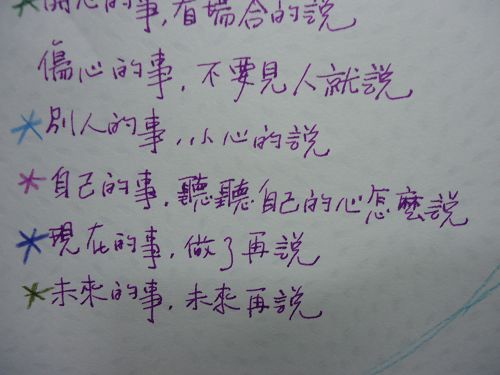 開心的事,看場合的說
傷心的事,不要見人就說
別人的事,小心的說
自己的事,聽聽自己的心怎麼說
現在的事,做了再說
未來的事,未來再說